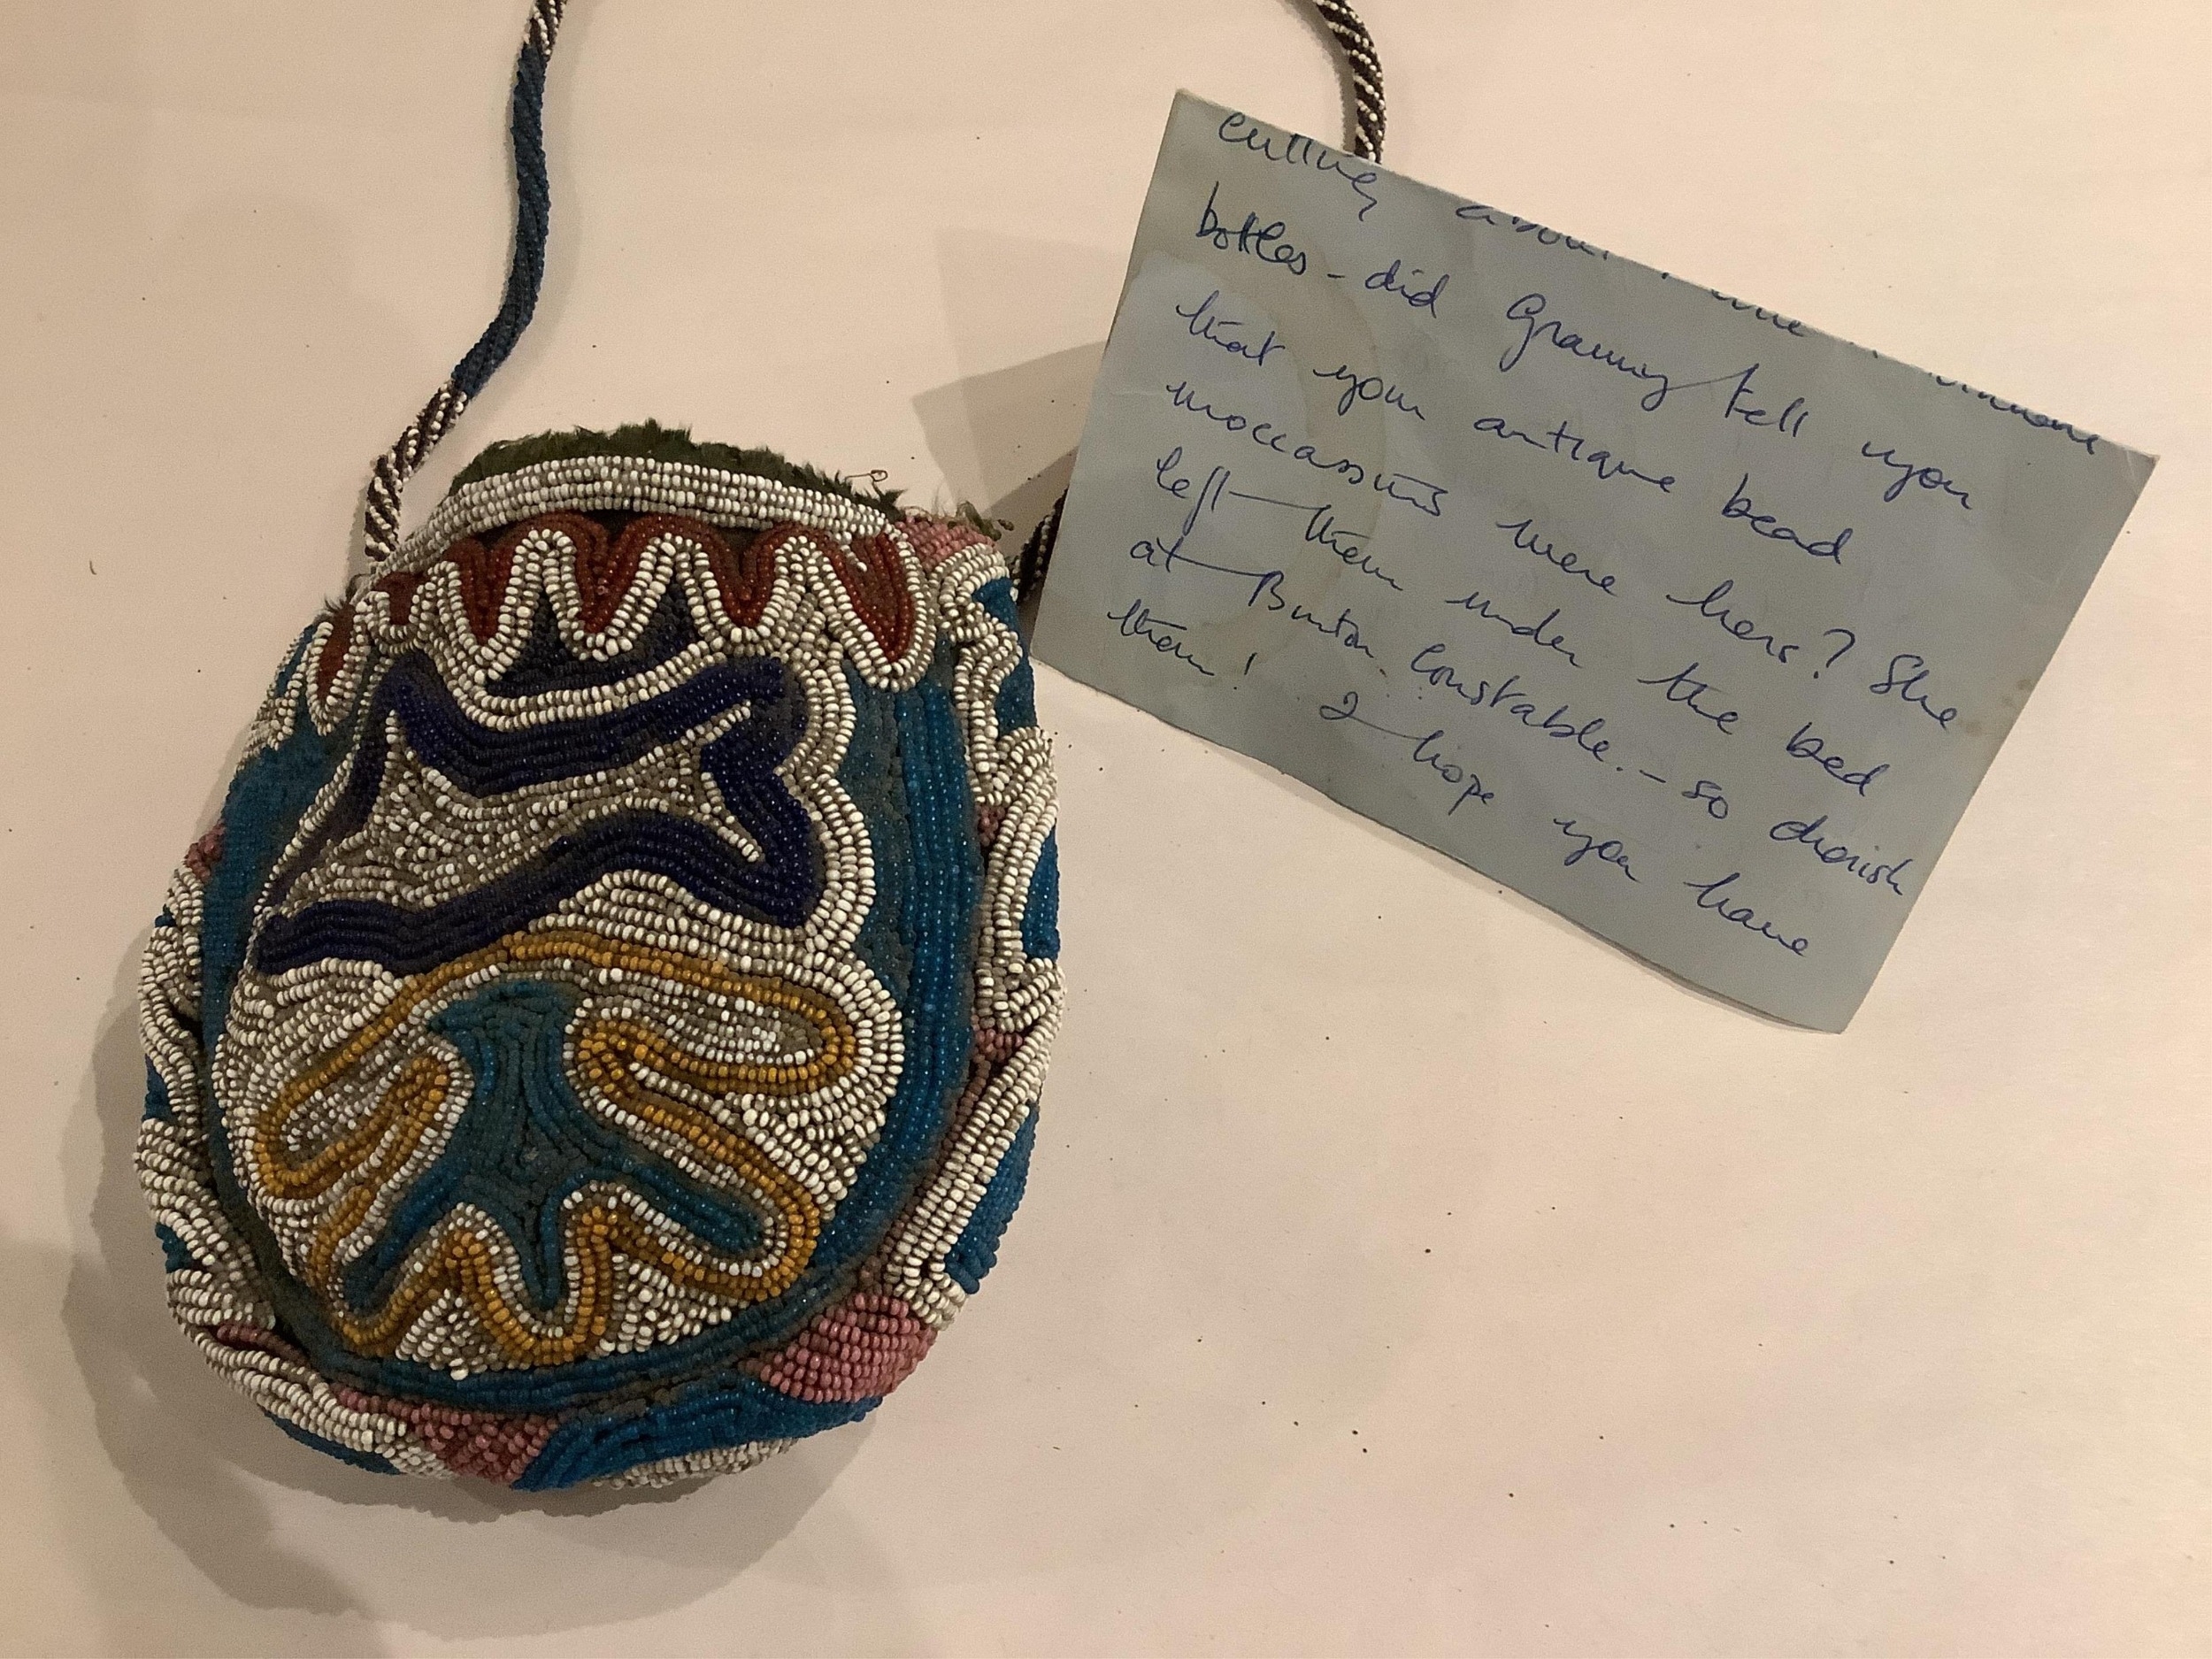 cutting about
bottles - did Granny tell you
that your antique bead
moccassins were hers? She
left them under the bed
at Burton Constable. - so cherish
them! I hope you have